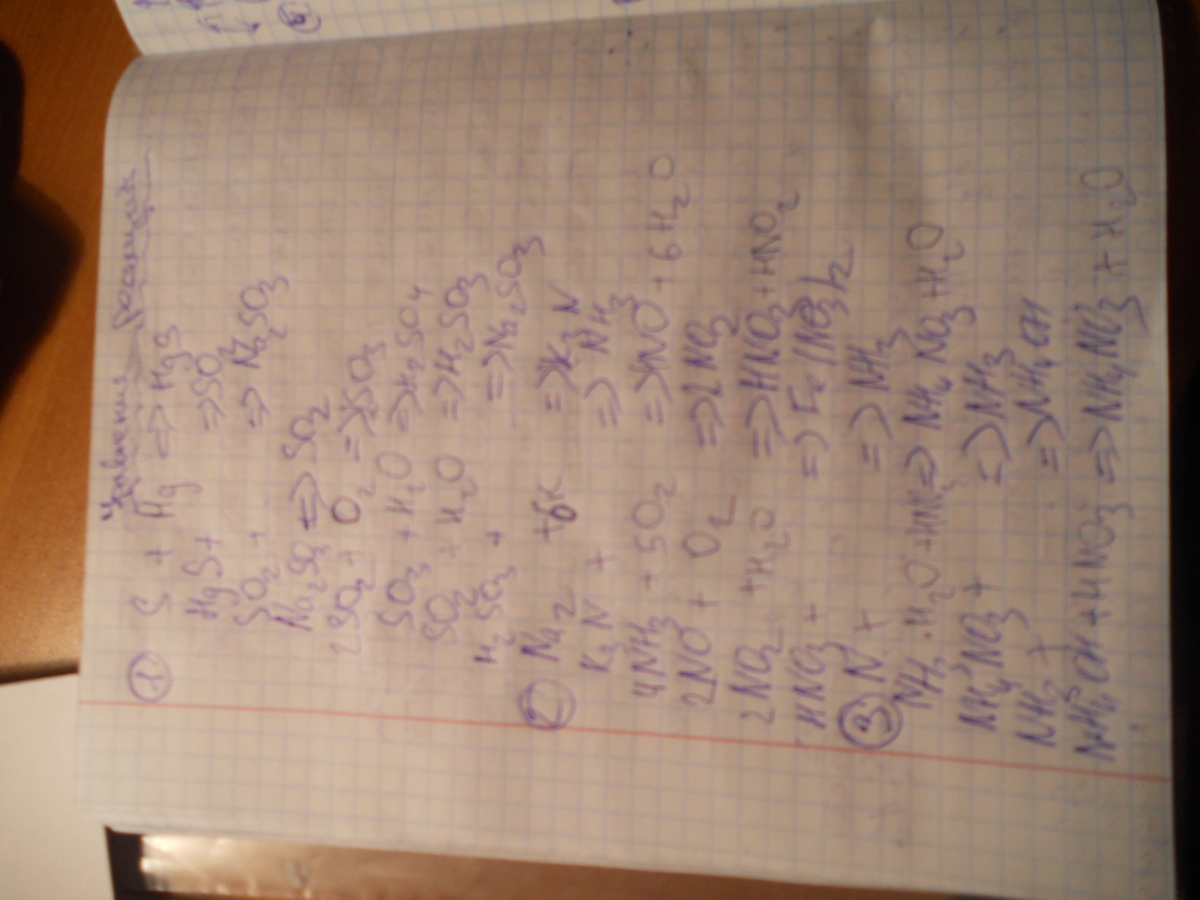 Уравнения реакций
① S + Hg => HgS
HgS + => SO2
SO2 + => Na2SO3
Na2SO3 => SO2
2SO2 + O2 => 2SO3
SO3 + H2O => H2SO4
SO2 + H2O => H2SO3
H2SO3 + => Na2SO3
② N2 + 6K => K3N
K3N + => NH3
4NH3 + 5O2 => 4NO + 6H2O
2NO + O2 => 2NO2
2NO2 + H2O => HNO3 + HNO2
HNO3 + => Fe(NO3)2
③ N + => NH3
NH3 · H2O + HNO3 => NH4NO3 + H2O
NH4NO3 + => NH3
NH3 + => NH4OH
NH4OH + HNO3 => NH4NO3 + H2O